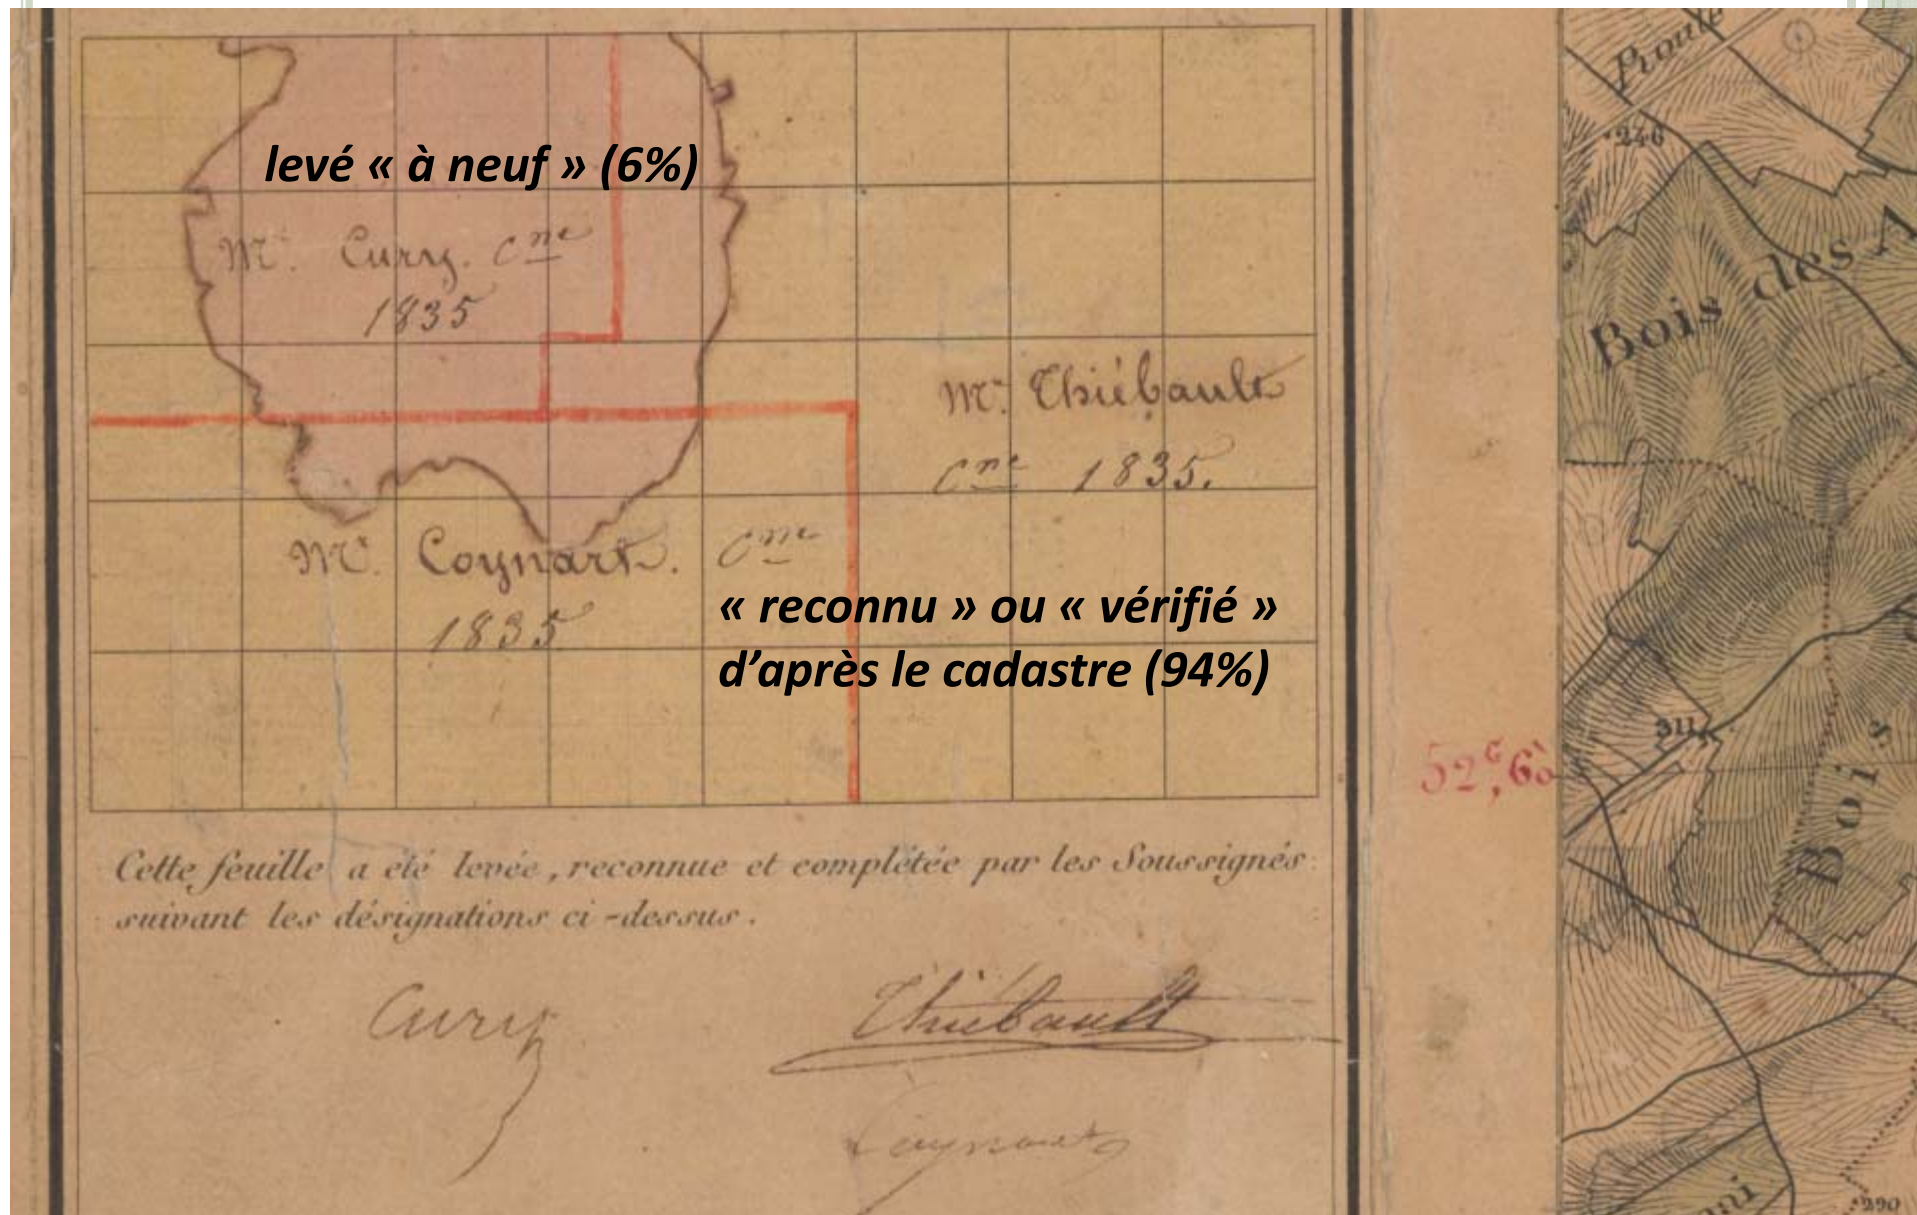 levé « à neuf » (6%)
Mr. Cury. Cne
1835
Mr. Thiébault
Cne 1835.
Mr. Coynart. Cne
1835
« reconnu » ou « vérifié »
d’après le cadastre (94%)
Cette feuille a été levée, reconnue et complétée par les Soussignés
suivant les désignations ci-dessus.
Cury
Thiébault
Coynart
52
Route
246
Bois des A
311
Bois
290